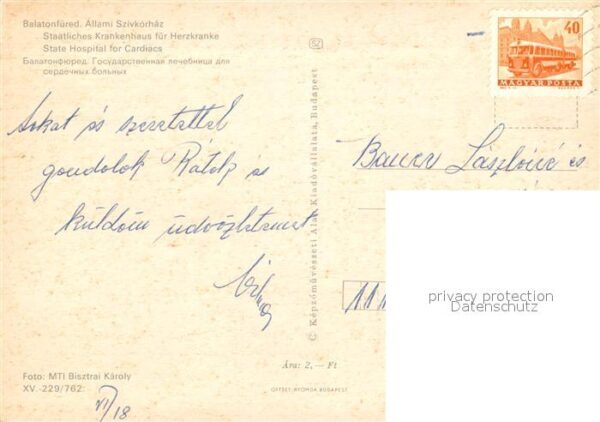 Balatonfüred. Állami Szívkórház
Staatliches Krankenhaus für Herzkranke
State Hospital for Cardiacs
Балатонфюред. Государственная лечебница для
сердечных больных
40
MAGYAR POSTA
Sokat és szeretettel
gondolok Rátok és
küldöm üdvözletemet
Bauer Lászlóné és
111
privacy protection
Datenschutz
© Képzőművészeti Alap Kiadóvállalata, Budapest
Ára: 2,— Ft
Foto: MTI Bisztrai Károly
XV.-229/762.
OFFSET-NYOMDA BUDAPEST
VI/18